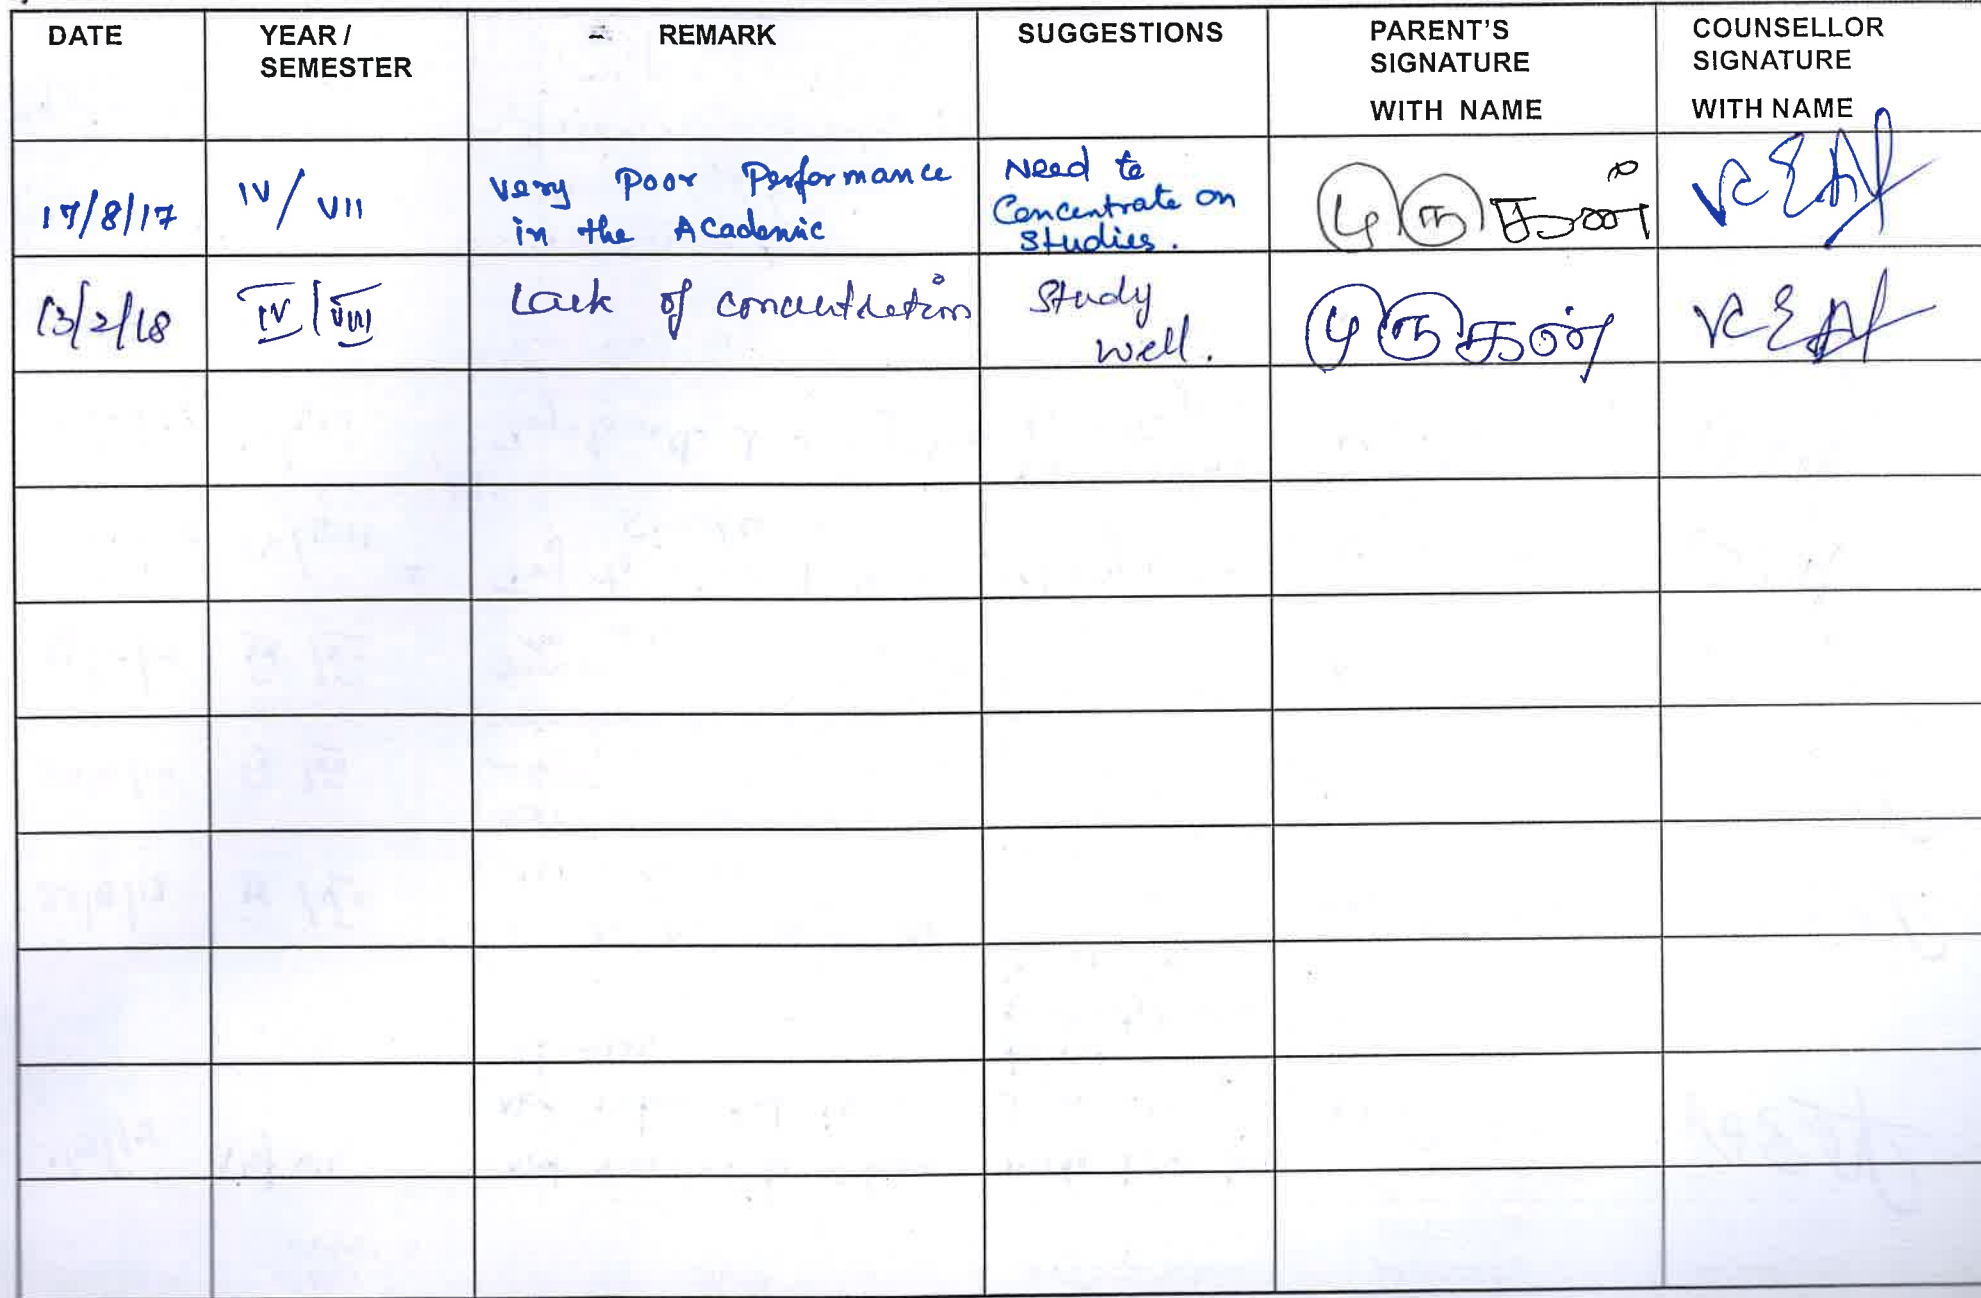 DATE
YEAR /
SEMESTER
REMARK
SUGGESTIONS
PARENT'S
SIGNATURE
WITH NAME
COUNSELLOR
SIGNATURE
WITH NAME
17/8/17
IV / VII
Very Poor Performance
in the Academic
Need to
Concentrate on
Studies.
13/2/18
IV / VIII
Lack of concentration
Study
well.